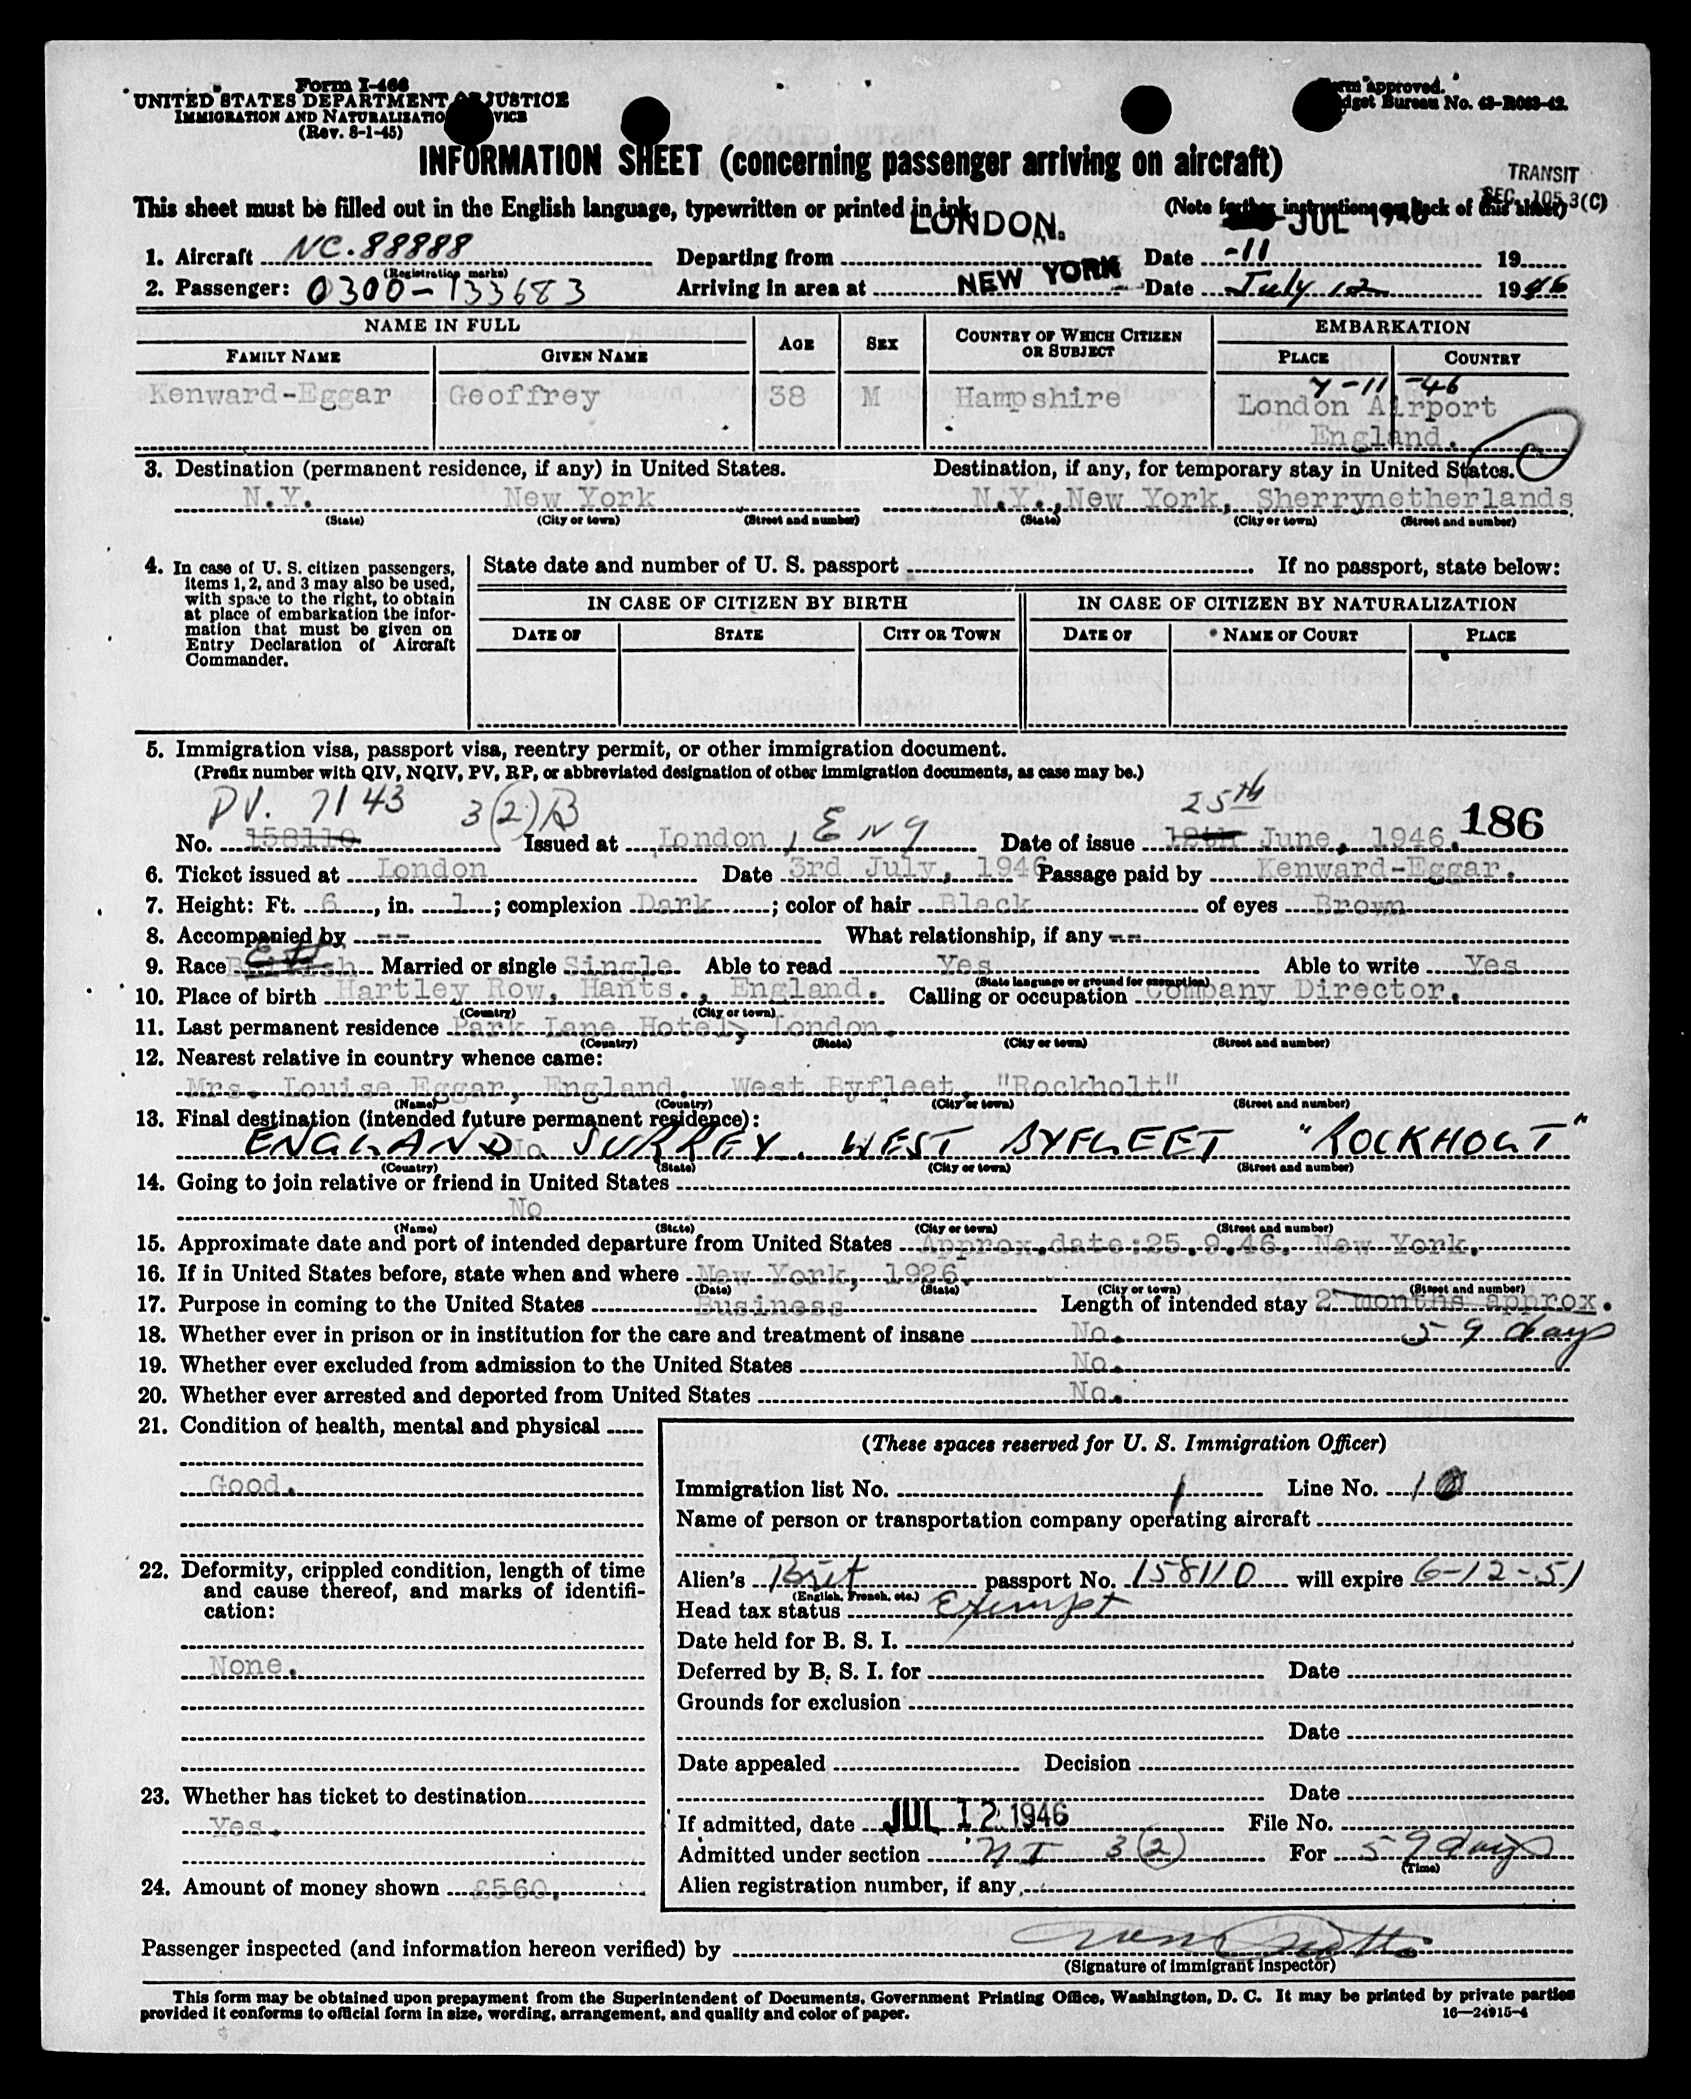 Form I-466
UNITED STATES DEPARTMENT OF JUSTICE
IMMIGRATION AND NATURALIZATION SERVICE
(Rev. 8-1-45)
Form approved.
Budget Bureau No. 43-R083-42.
INFORMATION SHEET (concerning passenger arriving on aircraft)
TRANSIT
SEC. 105.3(C)
This sheet must be filled out in the English language, typewritten or printed in ink. (Note further instructions on back of this sheet)
LONDON. JUL 1946
1. Aircraft NC.88888 (Registration marks) Departing from Date -11 19
2. Passenger: 0300-133683 Arriving in area at NEW YORK Date July 12 1946
NAME IN FULL AGE SEX COUNTRY OF WHICH CITIZEN OR SUBJECT EMBARKATION
FAMILY NAME GIVEN NAME PLACE COUNTRY
7-11-46
Kenward-Eggar Geoffrey 38 M Hampshire London Airport
England.
3. Destination (permanent residence, if any) in United States. Destination, if any, for temporary stay in United States.
N.Y. New York N.Y.,New York, Sherrynetherlands
(State) (City or town) (Street and number) (State) (City or town) (Street and number)
4. In case of U. S. citizen passengers, items 1, 2, and 3 may also be used, with space to the right, to obtain at place of embarkation the information that must be given on Entry Declaration of Aircraft Commander.
State date and number of U. S. passport If no passport, state below:
IN CASE OF CITIZEN BY BIRTH IN CASE OF CITIZEN BY NATURALIZATION
DATE OF STATE CITY OR TOWN DATE OF NAME OF COURT PLACE
5. Immigration visa, passport visa, reentry permit, or other immigration document.
(Prefix number with QIV, NQIV, PV, RP, or abbreviated designation of other immigration documents, as case may be.)
PV. 7143 3(2)B 25th
No. 158110 Issued at London, Eng Date of issue 12th June, 1946. 186
6. Ticket issued at London Date 3rd July, 1946 Passage paid by Kenward-Eggar.
7. Height: Ft. 6, in. 1; complexion Dark; color of hair Black of eyes Brown
8. Accompanied by -- What relationship, if any --
9. Race British Married or single Single. Able to read Yes Able to write Yes
(State language or ground for exemption)
10. Place of birth Hartley Row, Hants., England. Calling or occupation Company Director.
(Country) (City or town)
11. Last permanent residence Park Lane Hotel, London.
(Country) (State) (City or town) (Street and number)
12. Nearest relative in country whence came:
Mrs. Louise Eggar, England. West Byfleet, "Rockholt"
(Name) (Country) (City or town) (Street and number)
13. Final destination (intended future permanent residence):
No
ENGLAND SURREY. WEST BYFLEET "ROCKHOLT"
(Country) (State) (City or town) (Street and number)
14. Going to join relative or friend in United States
No
(Name) (State) (City or town) (Street and number)
15. Approximate date and port of intended departure from United States Approx.date:25.9.46. New York.
16. If in United States before, state when and where New York, 1926.
(Date) (State) (City or town) (Street and number)
17. Purpose in coming to the United States Business Length of intended stay 2 months approx.
18. Whether ever in prison or in institution for the care and treatment of insane No. 59 days
19. Whether ever excluded from admission to the United States No.
20. Whether ever arrested and deported from United States No.
21. Condition of health, mental and physical
Good.
22. Deformity, crippled condition, length of time and cause thereof, and marks of identification:
None.
23. Whether has ticket to destination
Yes.
24. Amount of money shown £560.
(These spaces reserved for U. S. Immigration Officer)
Immigration list No. 1 Line No. 10
Name of person or transportation company operating aircraft
Alien's Brit passport No. 158110 will expire 6-12-51
(English, French, etc.)
Head tax status Exempt
Date held for B. S. I.
Deferred by B. S. I. for Date
Grounds for exclusion
Date
Date appealed Decision
Date
If admitted, date JUL 12 1946 File No.
Admitted under section 3(2) For 59 days
(Time)
Alien registration number, if any
Passenger inspected (and information hereon verified) by
(Signature of immigrant inspector)
This form may be obtained upon prepayment from the Superintendent of Documents, Government Printing Office, Washington, D. C. It may be printed by private parties
provided it conforms to official form in size, wording, arrangement, and quality and color of paper. 16—24915-4